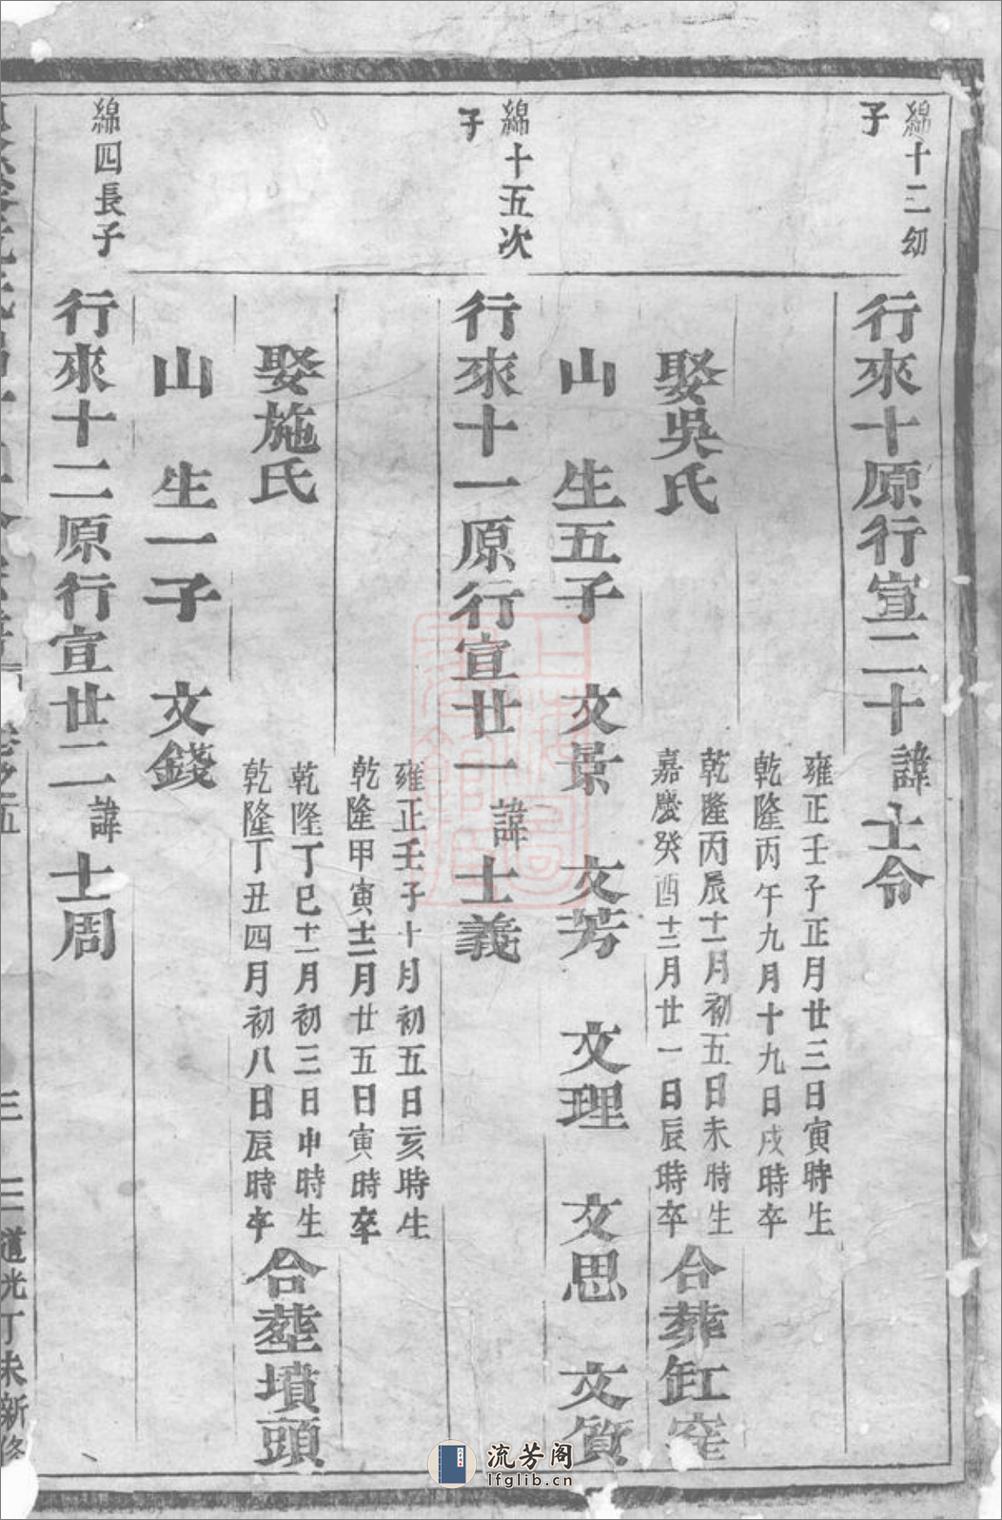 綿十二幼
子
行來十原行宣二十諱士令
雍正壬子正月廿三日寅時生
乾隆丙午九月十九日戌時卒
娶吳氏
乾隆丙辰十一月初五日未時生
嘉慶癸酉十二月廿一日辰時卒
合葬缸窑
山 生五子 文景 文芳 文理 文思 文質
綿十五次
子
行來十一原行宣廿一諱士義
雍正壬子十月初五日亥時生
乾隆甲寅十二月廿五日寅時卒
娶施氏
乾隆丁巳十二月初三日申時生
乾隆丁丑四月初八日辰時卒
合塟墳頭
山 生一子 文錢
綿四長子
行來十二原行宣廿二諱士周
卷之五
三 三 道光丁未新修
流芳阁
lfglib.cn